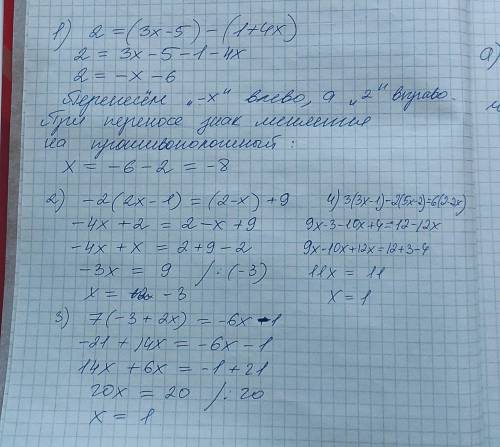 1) 2 = (3x-5) - (1+4x)
2 = 3x - 5 - 1 - 4x
2 = -x - 6
Перенесём „-x" влево, а „2" вправо.
При переносе знак меняется
на противоположный:
x = -6 - 2 = -8
2) -2(2x-1) = (2-x) + 9
-4x + 2 = 2 - x + 9
-4x + x = 2 + 9 - 2
-3x = 9 /:(-3)
x = -3
3) 7(-3 + 2x) = -6x - 1
-21 + 14x = -6x - 1
14x + 6x = -1 + 21
20x = 20 /:20
x = 1
4) 3(3x-1)-2(5x-2)=6(2-2x)
9x-3-10x+4=12-12x
9x-10x+12x=12+3-4
11x = 11
x = 1
а)